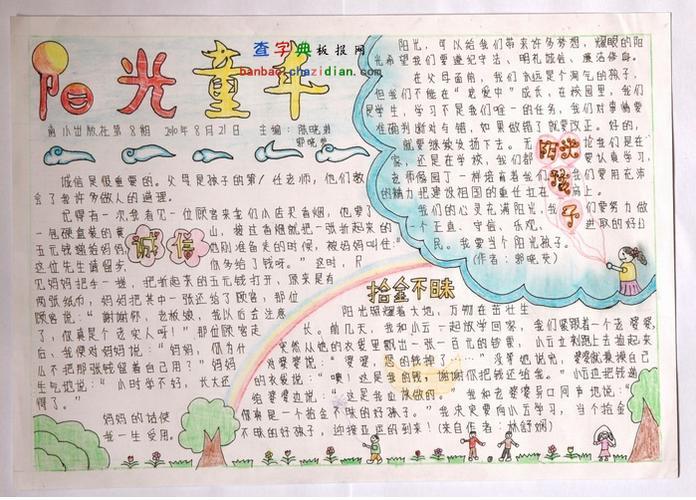 查字典板报网
banbao.chazidian.com
阳光童年
第8期 2010年8月21日 主编:
诚信是很重要的。父母是孩子的第1任老师,他们教
会了我许多做人的道理。
记得有一次我看见一位顾客来我们小店买香烟,他要了
一包硬盒装的黄山,
五元钱递给妈妈 他刚准备走的时候,被妈妈叫住:“
这位先生请留步 你多给了钱呀。”这时,只
见妈妈把手一搓,把折起来的五元钱打开,原来是有
两张纸币,妈妈把其中一张还给了顾客,那位
顾客说:“谢谢你,老板娘,我以后会注意
了,你真是个老实人呀!”那位顾客走
后,我便对妈妈说:“妈妈,你为什
么不把那张钱留着自己用?”妈妈
生气地说:“小时学不好,长大还
得了。”
妈妈的话使
我一生受用。
诚信
阳光,可以给我们带来许多梦想,耀眼的阳
光希望我们要遵纪守法、明礼诚信、廉洁修身。
在父母面前,我们永远是个淘气的孩子,
但我们不能在“老爱中”成长,在校园里,我们
是学生,学习不是我们唯一的任务,我们对事情要
准确判断对与错,如果做错了就要改正。好的,
就要继续发扬下去。无论我们是在
家,还是在学校,我们都要认真学习,
老师像园丁一样培育着我们,我们要用在沛
的精力把建设祖国的重任扛在肩上。
我们的心灵充满阳光,我们要努力做
一个正直、守信、乐观、进取的好公
民。我要当个阳光孩子。
(作者:郭晓英)
阳光孩子
拾金不昧
阳光照耀着大地,万物在茁壮生
长。前几天,我和小云一起放学回家,我们紧跟着一个老婆婆,
突然从她的衣袋里飘出一张一百元的钞票,小云立刻跑上去捡起来
对婆婆说:“婆婆,您的钱掉了……”没等她说完,婆婆就摸摸自己
的衣袋说:“噢!这是我的钱,谢谢你把钱还给我。”小云边把钱递
给婆婆边说:“这是我应该做的。”我和老婆婆异口同声地说:“
你真是一个拾金不昧的好孩子。”我决定要向小云学习,当个拾金
不昧的好孩子,迎接亚运的到来!(来自作者:林舒娴)